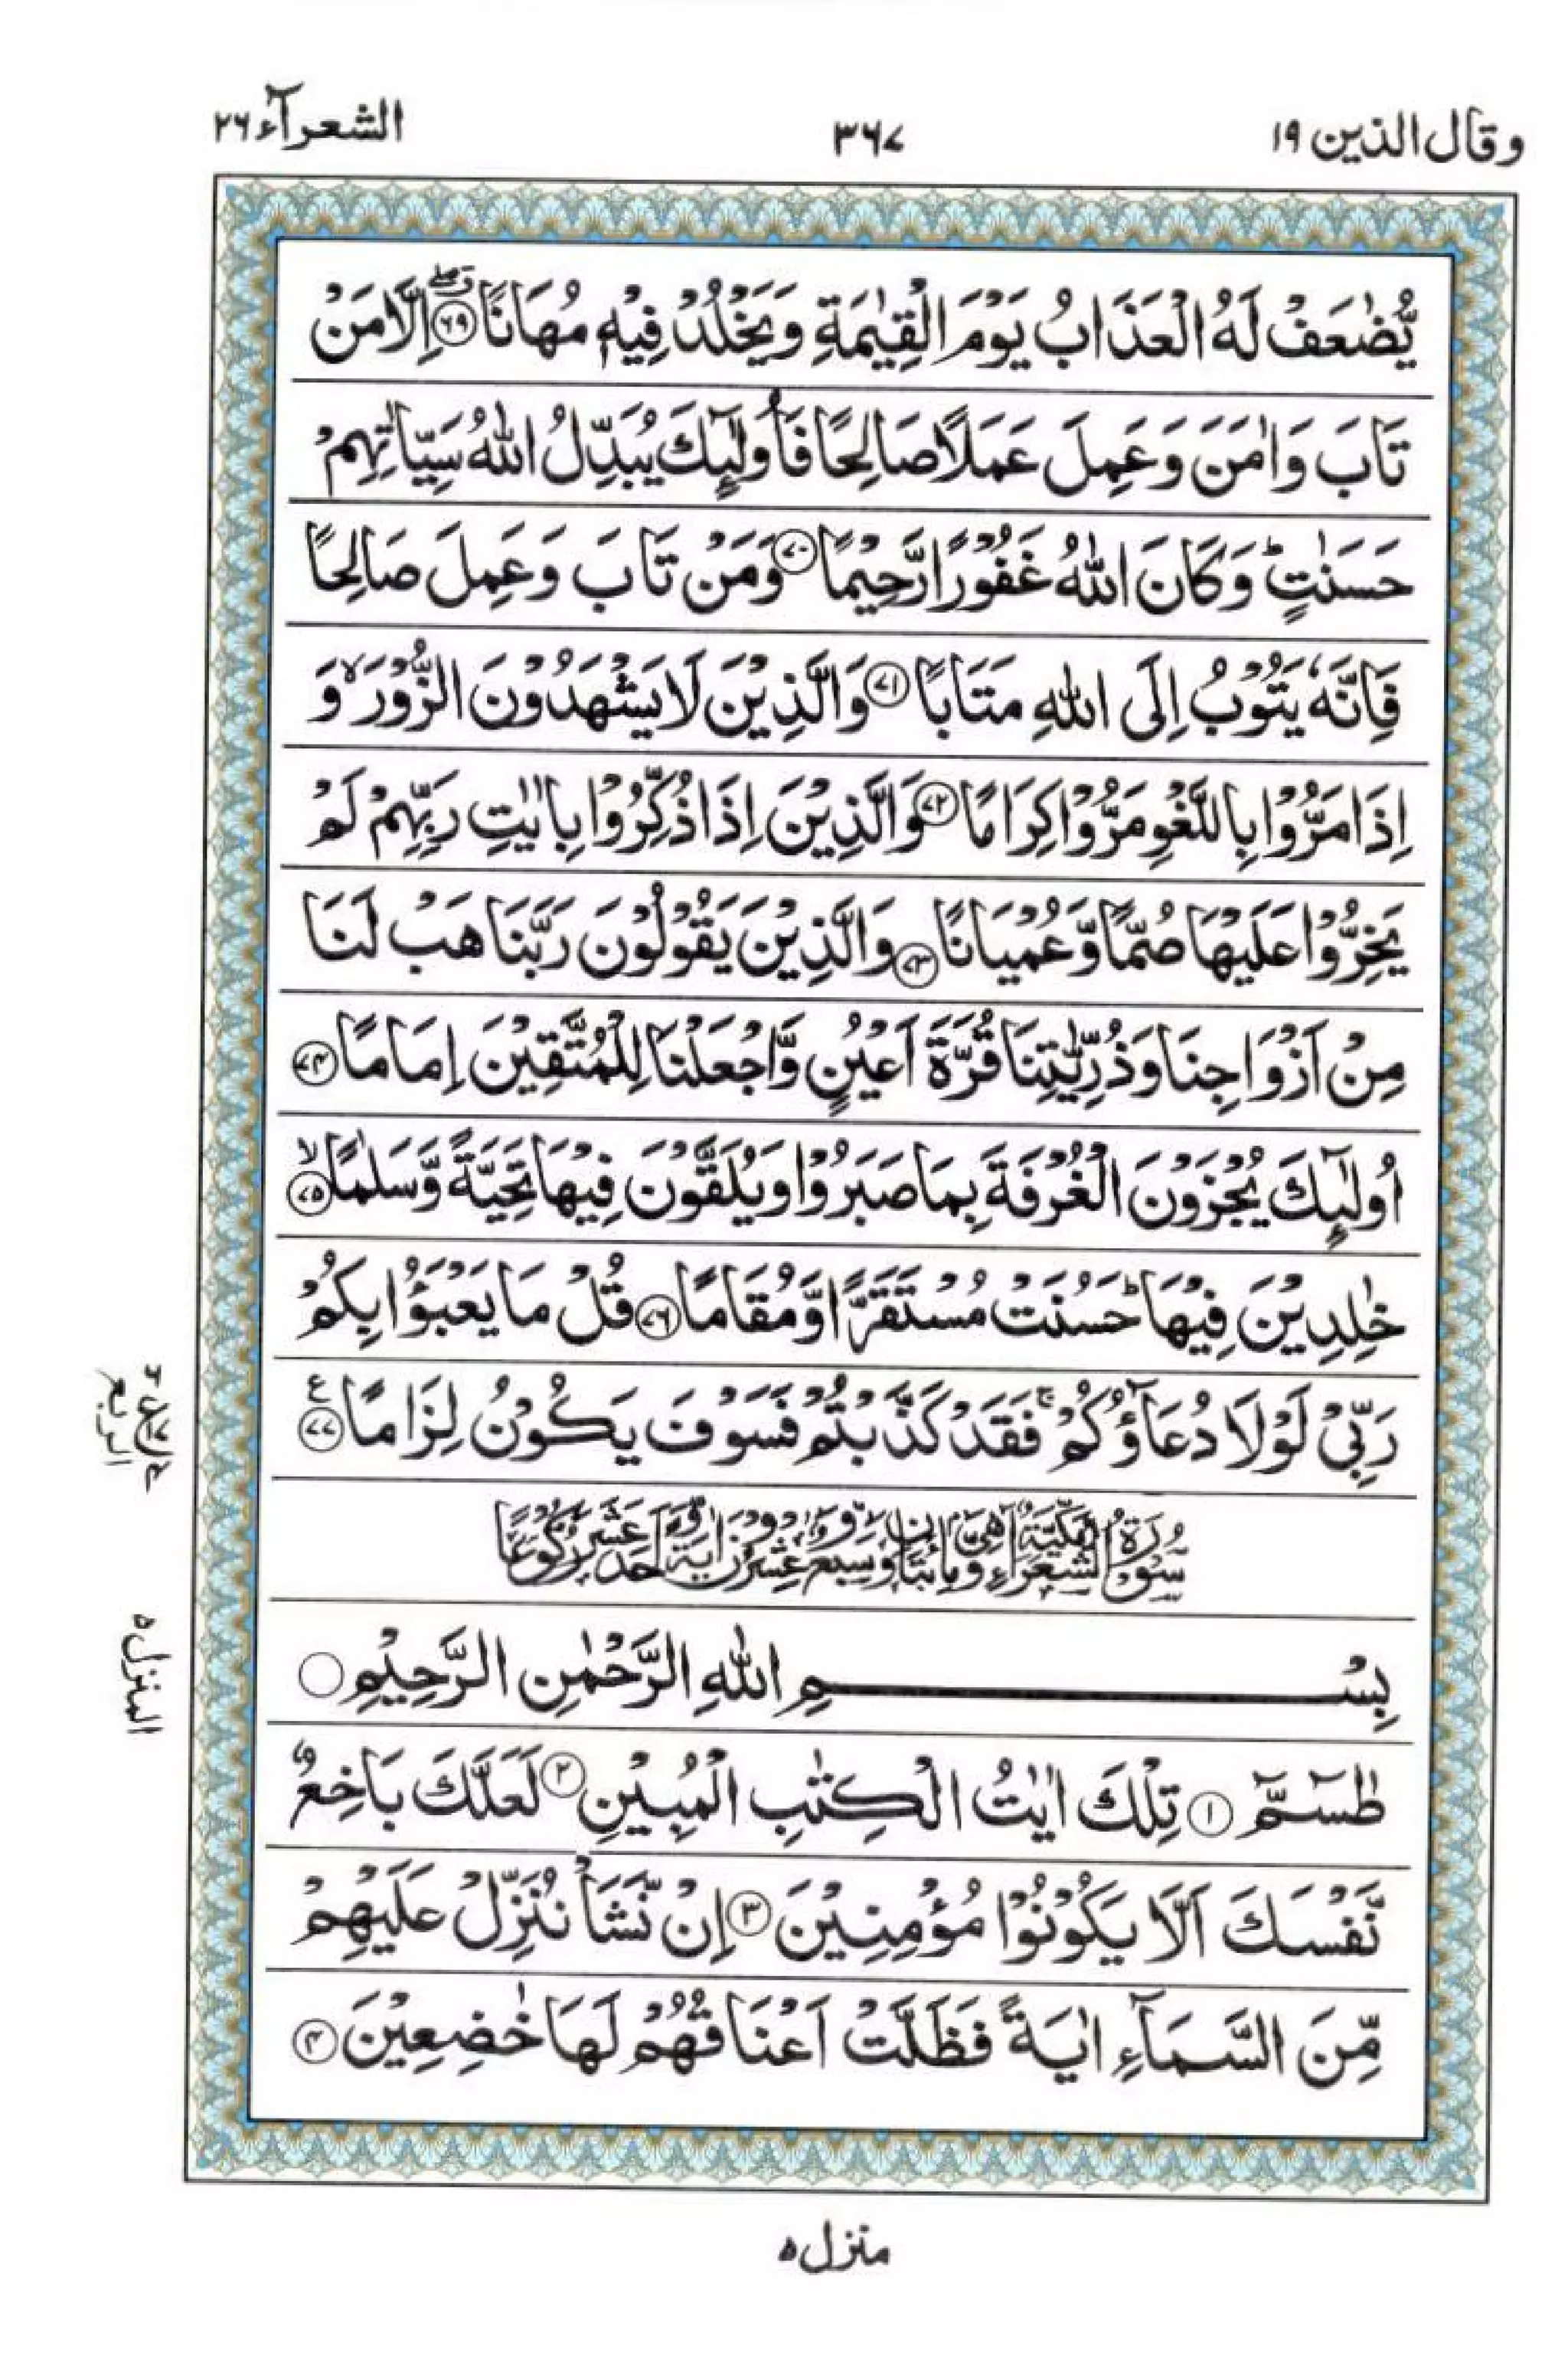 وقال الذين ١٩
٣٦٧
الشعرآء ٢٦
يُّضٰعَفْ لَهُ الْعَذَابُ يَوْمَ الْقِيٰمَةِ وَيَخْلُدْ فِيْهٖ مُهَانًا ﴿٦٩﴾ اِلَّا مَنْ
تَابَ وَاٰمَنَ وَعَمِلَ عَمَلًا صَالِحًا فَاُولٰٓئِكَ يُبَدِّلُ اللّٰهُ سَيِّاٰتِهِمْ
حَسَنٰتٍ ؕ وَكَانَ اللّٰهُ غَفُوْرًا رَّحِيْمًا ﴿٧٠﴾ وَمَنْ تَابَ وَعَمِلَ صَالِحًا
فَاِنَّهٗ يَتُوْبُ اِلَى اللّٰهِ مَتَابًا ﴿٧١﴾ وَالَّذِيْنَ لَا يَشْهَدُوْنَ الزُّوْرَ ۙ وَ
اِذَا مَرُّوْا بِاللَّغْوِ مَرُّوْا كِرَامًا ﴿٧٢﴾ وَالَّذِيْنَ اِذَا ذُكِّرُوْا بِاٰيٰتِ رَبِّهِمْ لَمْ
يَخِرُّوْا عَلَيْهَا صُمًّا وَّعُمْيَانًا ﴿٧٣﴾ وَالَّذِيْنَ يَقُوْلُوْنَ رَبَّنَا هَبْ لَنَا
مِنْ اَزْوَاجِنَا وَذُرِّيّٰتِنَا قُرَّةَ اَعْيُنٍ وَّاجْعَلْنَا لِلْمُتَّقِيْنَ اِمَامًا ﴿٧٤﴾
اُولٰٓئِكَ يُجْزَوْنَ الْغُرْفَةَ بِمَا صَبَرُوْا وَيُلَقَّوْنَ فِيْهَا تَحِيَّةً وَّسَلٰمًا ۙ﴿٧٥﴾
خٰلِدِيْنَ فِيْهَا ؕ حَسُنَتْ مُسْتَقَرًّا وَّمُقَامًا ﴿٧٦﴾ قُلْ مَا يَعْبَؤُا بِكُمْ
رَبِّيْ لَوْلَا دُعَآؤُكُمْ ۚ فَقَدْ كَذَّبْتُمْ فَسَوْفَ يَكُوْنُ لِزَامًا ﴿٧٧﴾ ع
سُوْرَةُ الشُّعَرَآءِ مَكِّيَّةٌ وَّهِيَ مِائَتَانِ وَسَبْعٌ وَّعِشْرُوْنَ اٰيَةً وَّاَحَدَ عَشَرَ رُكُوْعًا
بِسْمِ اللّٰهِ الرَّحْمٰنِ الرَّحِيْمِ
طٰسٓمّٓ ﴿١﴾ تِلْكَ اٰيٰتُ الْكِتٰبِ الْمُبِيْنِ ﴿٢﴾ لَعَلَّكَ بَاخِعٌ
نَّفْسَكَ اَلَّا يَكُوْنُوْا مُؤْمِنِيْنَ ﴿٣﴾ اِنْ نَّشَاْ نُنَزِّلْ عَلَيْهِمْ
مِّنَ السَّمَآءِ اٰيَةً فَظَلَّتْ اَعْنَاقُهُمْ لَهَا خٰضِعِيْنَ ﴿٤﴾
الربع
المنزل ٥
منزل ٥